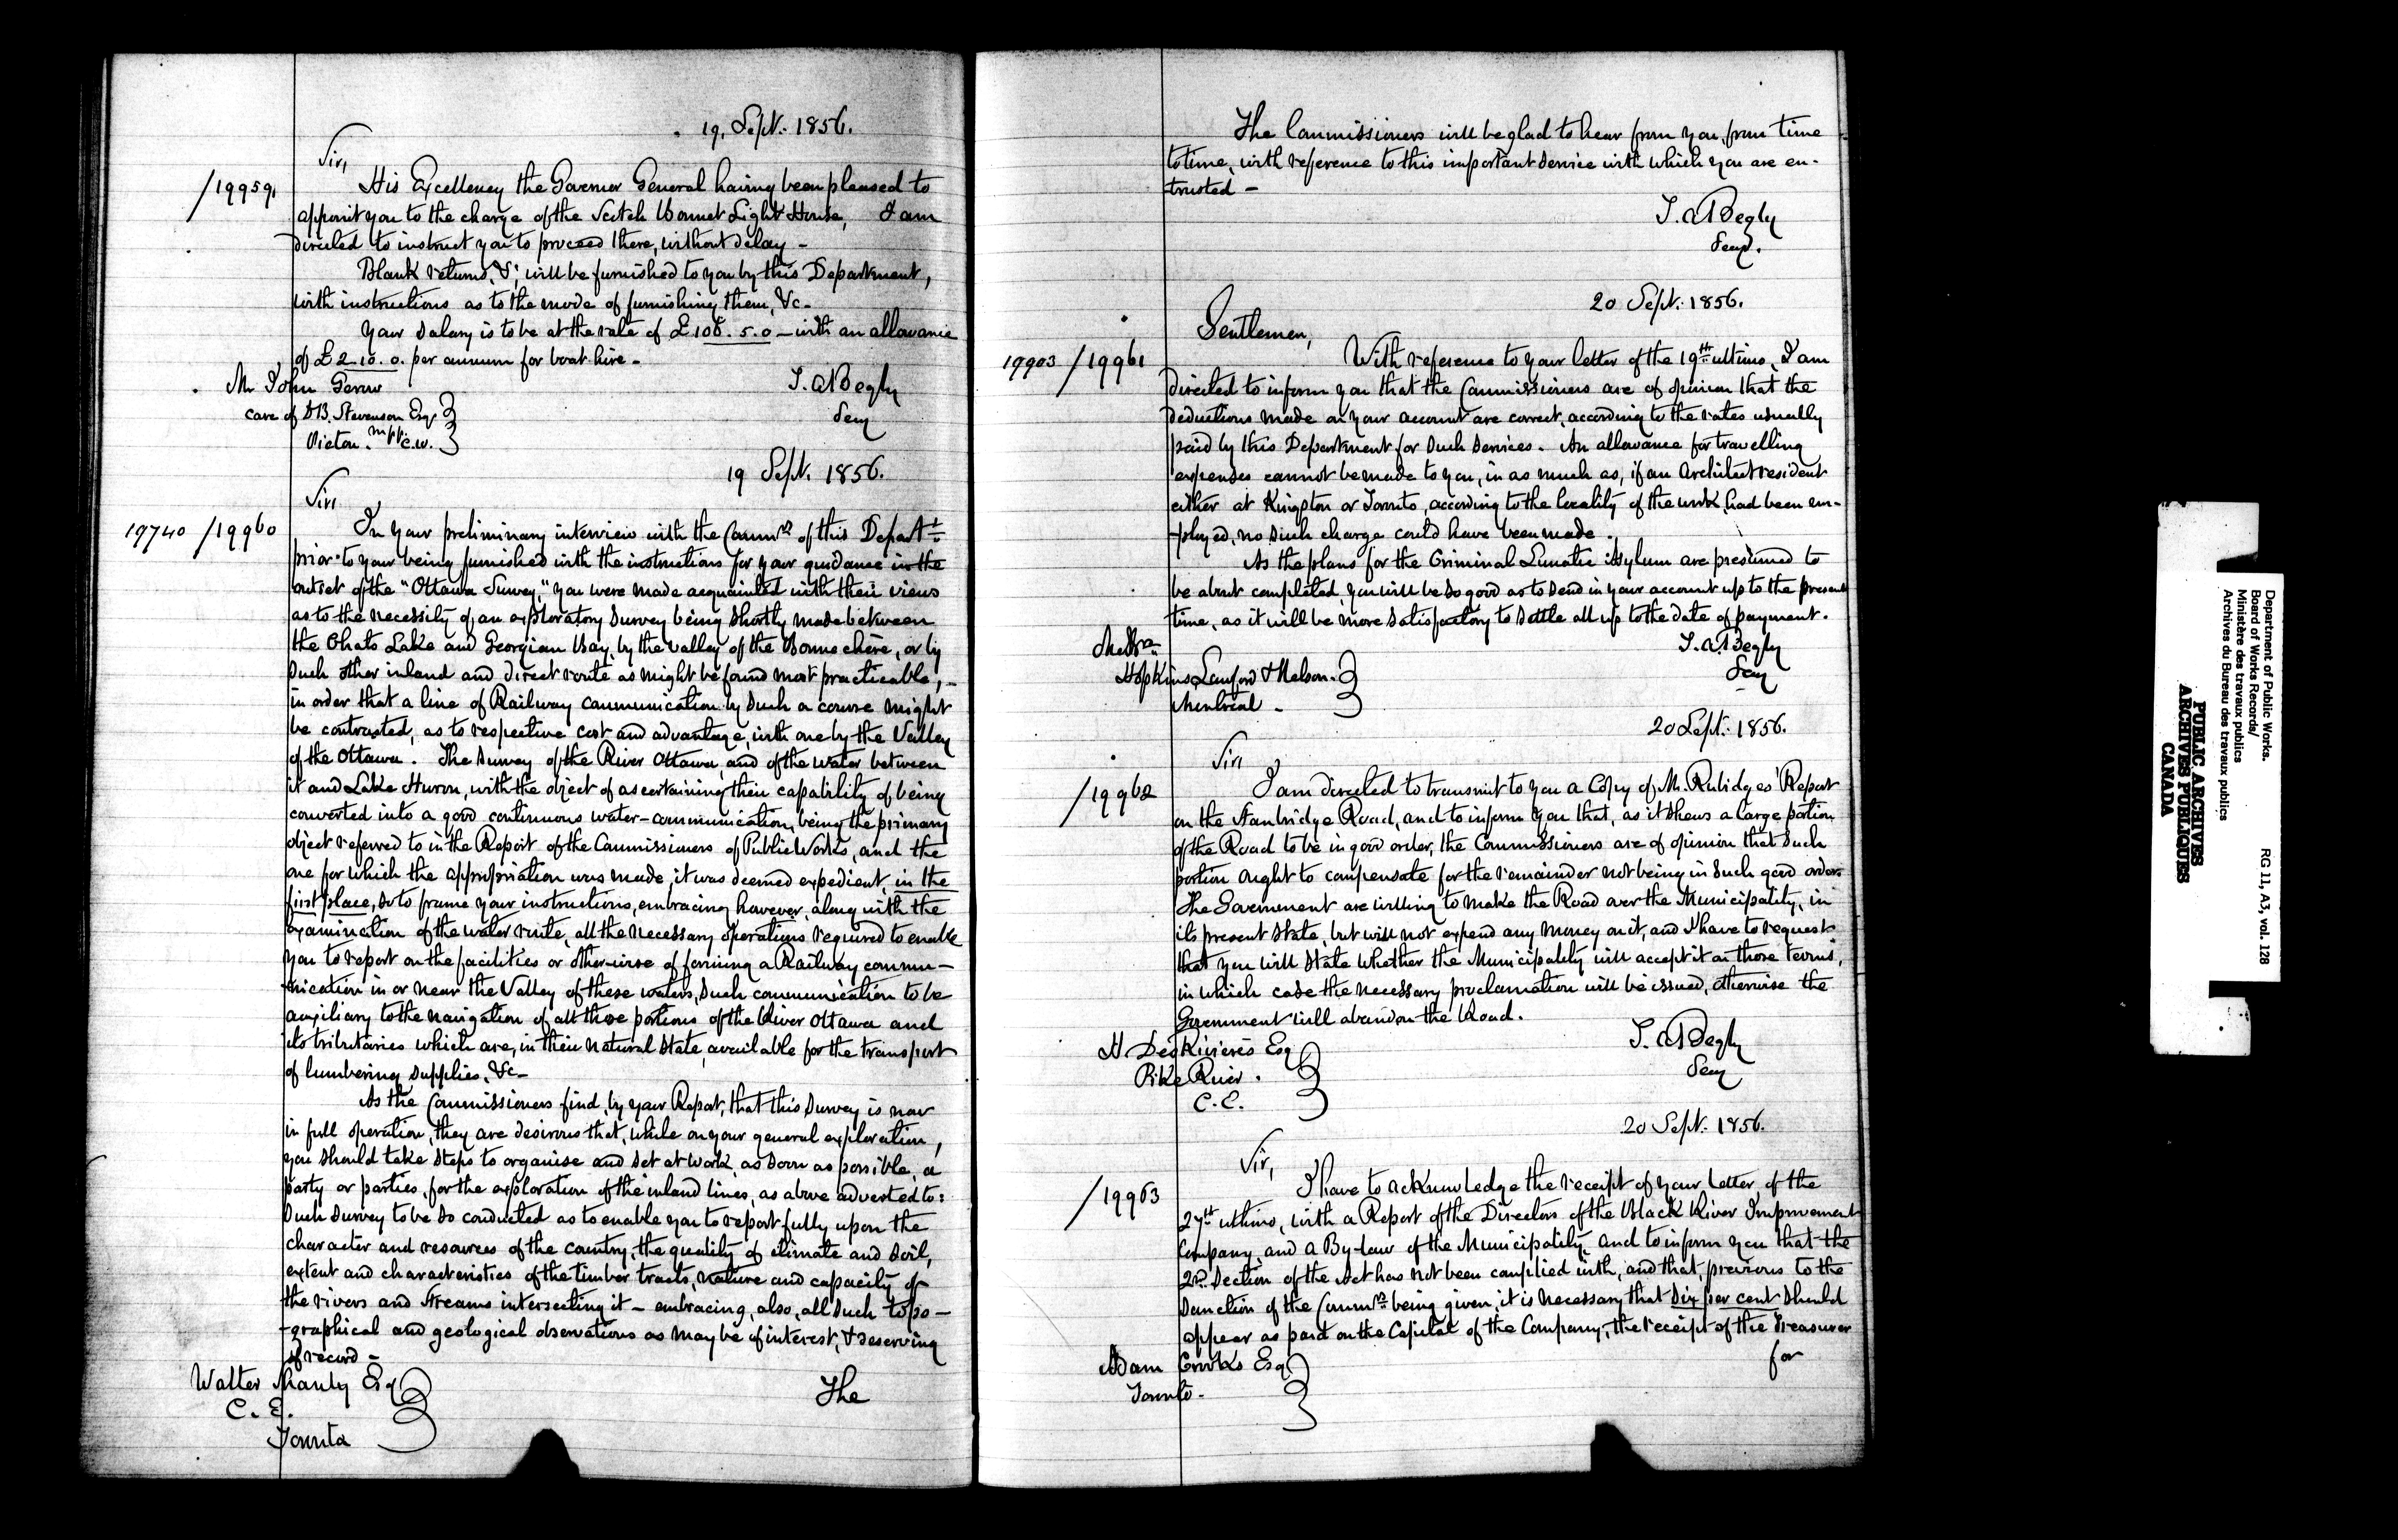 19, Sept. 1856.
Sir,
/19959,
His Excellency the Governor General having been pleased to
appoint you to the charge of the Scotch Bonnet Light House, I am
directed to instruct you to proceed there, without delay -
Blank returns, &c; will be furnished to you by this Department,
with instructions as to the mode of furnishing them, &c-
Your salary is to be at the rate of £108. 5. 0 - with an allowance
of £2. 10. 0. per annum for boat hire -
Mr John
care of D B. Stevenson Esq
mpp.
Picton. C.W.
T. A Begly
Secy
19 Sept. 1856.
Sir,
19740 /19960
In your preliminary interview with the Commrs of this Departt
prior to your being furnished with the instructions for your guidance in the
outset of the "Ottawa Survey," you were made acquainted with their views
as to the necessity of an exploratory survey being shortly made between
the Chats Lake and Georgian Bay, by the valley of the Bonne chère, or by
such other inland and direct route as might be found most practicable, -
in order that a line of Railway communication by such a course might
be contrasted, as to respective cost and advantage, with one by the Valley
of the Ottawa. The survey of the River Ottawa, and of the water between
it and Lake Huron, with the object of ascertaining their capability of being
converted into a good continuous water-communication, being the primary
object referred to in the Report of the Commissioners of Public Works, and the
one for which the appropriation was made, it was deemed expedient, in the
first place, so to frame your instructions, embracing however, along with the
examination of the water route, all the necessary operations required to enable
you to report on the facilities or otherwise of forming a Railway commu-
-nication in or near the Valley of these waters, such communication to be
auxiliary to the navigation of all those portions of the River Ottawa and
its tributaries which are, in their natural state, available for the transport
of lumbering supplies, &c-
As the Commissioners find, by your Report, that this survey is now
in full operation, they are desirous that, while on your general exploration,
you should take steps to organise and set at work, as soon as possible, a
party or parties, for the exploration of the inland lines, as above adverted to:
such survey to be so conducted as to enable you to report fully upon the
character and resources of the country, the quality of climate and soil,
extent and characteristics of the timber tracts, nature and capacity of
the rivers and streams intersecting it - embracing, also, all such topo-
-graphical and geological observations as may be of interest, & deserving
of record -
Walter Shanly Esq
C. E.
Toronto
The
The Commissioners will be glad to hear from you, from time
to time, with reference to this important service with which you are en-
trusted -
T. A Begly
Secy.
20 Sept. 1856.
Gentlemen,
19903 /19961
With reference to your letter of the 19th ultimo, I am
directed to inform you that the Commissioners are of opinion that the
deductions made on your account are correct, according to the rates usually
paid by this Department for such services. An allowance for travelling
expenses cannot be made to you, in as much as, if an Architect resident
either at Kingston or Toronto, according to the locality of the work, had been em-
-ployed, no such charge could have been made.
As the plans for the Criminal Lunatic Asylum are presumed to
be about completed, you will be so good as to send in your account up to the present
time, as it will be more satisfactory to settle all up to the date of payment.
Messrs
Hopkins, Lawford & Nelson.
Montreal -
T. A. Begly
Secy
20 Sept. 1856.
Sir,
/19962
I am directed to transmit to you a Copy of Mr. Rubidge's Report
on the Stanbridge Road, and to inform you that, as it shews a large portion
of the Road to be in good order, the Commissioners are of opinion that such
portion ought to compensate for the remainder not being in such good order.
The Government are willing to make the Road over the Municipality, in
its present state, but will not expend any money on it, and I have to request
that you will state whether the Municipality will accept it on those terms,
in which case the necessary proclamation will be issued, otherwise the
Government will abandon the Road.
H. DesRivieres Esq
Pike River.
C. E.
T. A Begly
Secy
20 Sept. 1856.
Sir,
/19963
I have to acknowledge the receipt of your letter of the
27th ultimo, with a Report of the Directors of the Black River Improvement
Company, and a By-law of the Municipality, and to inform you that the
2nd Section of the Act has not been complied with, and that, previous to the
sanction of the Commrs being given, it is necessary that six per cent should
appear as paid on the Capital of the Company, the receipt of the Treasurer
Adam Crooks Esq
Toronto -
for
Department of Public Works.
Board of Works Records/
Ministère des travaux publics
Archives du Bureau des travaux publics
RG 11, A3, vol. 128
PUBLIC ARCHIVES
ARCHIVES PUBLIQUES
CANADA